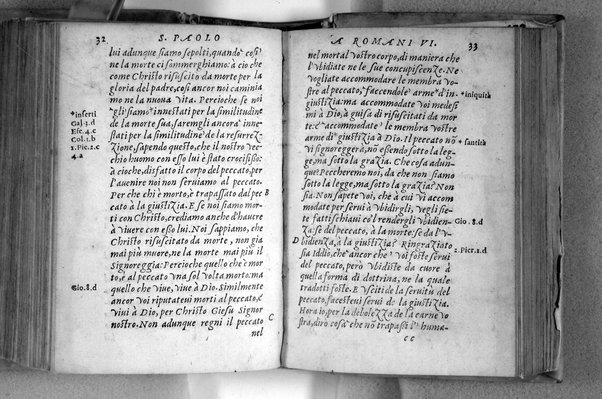 32
S. PAOLO
lui adunque siamo sepolti, quando così
ne la morte ci sommerghiamo: à cio che
come Christo risuscitò da morte per la
gloria del padre, così ancor noi caminia
mo ne la nuova vita. Percioche se noi
*gli siamo innestati per la similitudine
de la morte sua, saremgli ancora inne-
stati per la similitudine de la resurrez-
zione, sapendo questo, che il nostro vec-
chio huomo con esso lui è stato crocifisso:
à cioche, disfatto il corpo del peccato, per
l'auenire noi non seruiamo al peccato.
Per che chi è morto, è trapassato dal pec-
cato à la giustizia. E se noi siamo mor-
ti con Christo, crediamo anche d'hauere
à viuere con esso lui. Noi sappiamo, che
Christo risuscitato da morte, non gia
mai più muore, ne la morte mai più il
Signoreggia: Percioche quello che è mor-
to, è al peccato vna sol volta morto: ma
quello che viue, viue à Dio. Similmente
ancor voi riputateui morti al peccato, e
viui à Dio, per Christo Giesù Signor
nostro. Non adunque regni il peccato
nel
*inserti
Gal. 3. d
Efe. 4. c
Col. 3. b
1. Pie. 2. c
4. a
Gio. 8. d
B
C
A ROMANI VI.
33
nel mortal vostro corpo, di maniera che
l'vbidiate ne le sue concupiscenze. Ne
vogliate accommodare le membra vo-
stre al peccato, faccendole arme *d'in-
giustizia: ma accommodate voi medesi
mi à Dio, à guisa di risuscitati da mor-
te: e accommodate le membra vostre
arme di giustizia à Dio. Il peccato nō
vi signoreggerà, nō essendo sotto la leg-
ge, ma sotto la grazia. Che cosa adun-
que? Peccheremo noi, da che non siamo
sotto la legge, ma sotto la grazia? Non
sia. Non sapete voi, che à cui vi accom
modate per serui à vbidirgli, voi gli sie-
te fatti schiaui co'l rendergli vbidien-
za: se del peccato, à la morte: se da l'v-
bidienza, à la giustizia? Ringraziato
sia Iddio, che ancor che voi foste serui
del peccato, però vbidiste da cuore à
quella forma di dottrina, ne la quale
tradotti foste. E Vsciti de la seruitù del
peccato, faceste ui serui de la giustizia.
Hora io, per la debolezza de la carne vo
stra, dirò cosa che nō trapassi l'huma-
cc
*iniquità
*santità
Gio. 8. d
2. Piet. 2. d
D